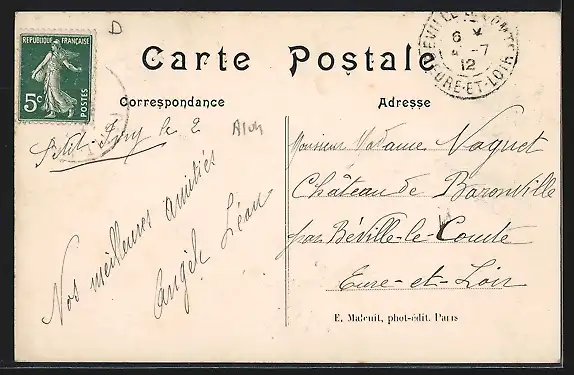 D
RÉPUBLIQUE FRANÇAISE
5c
POSTES
BÉVILLE-LE-COMTE
6
-7
12
EURE-ET-LOIR
Carte Postale
Correspondance
Adresse
Petit-Ivry le 2
Nos meilleures amitiés
Angèle Léon
Monsieur Madame Noquet
Château de Baronville
par Béville-le-Comte
Eure-et-Loir
E. Maleuit, phot-édit. Paris